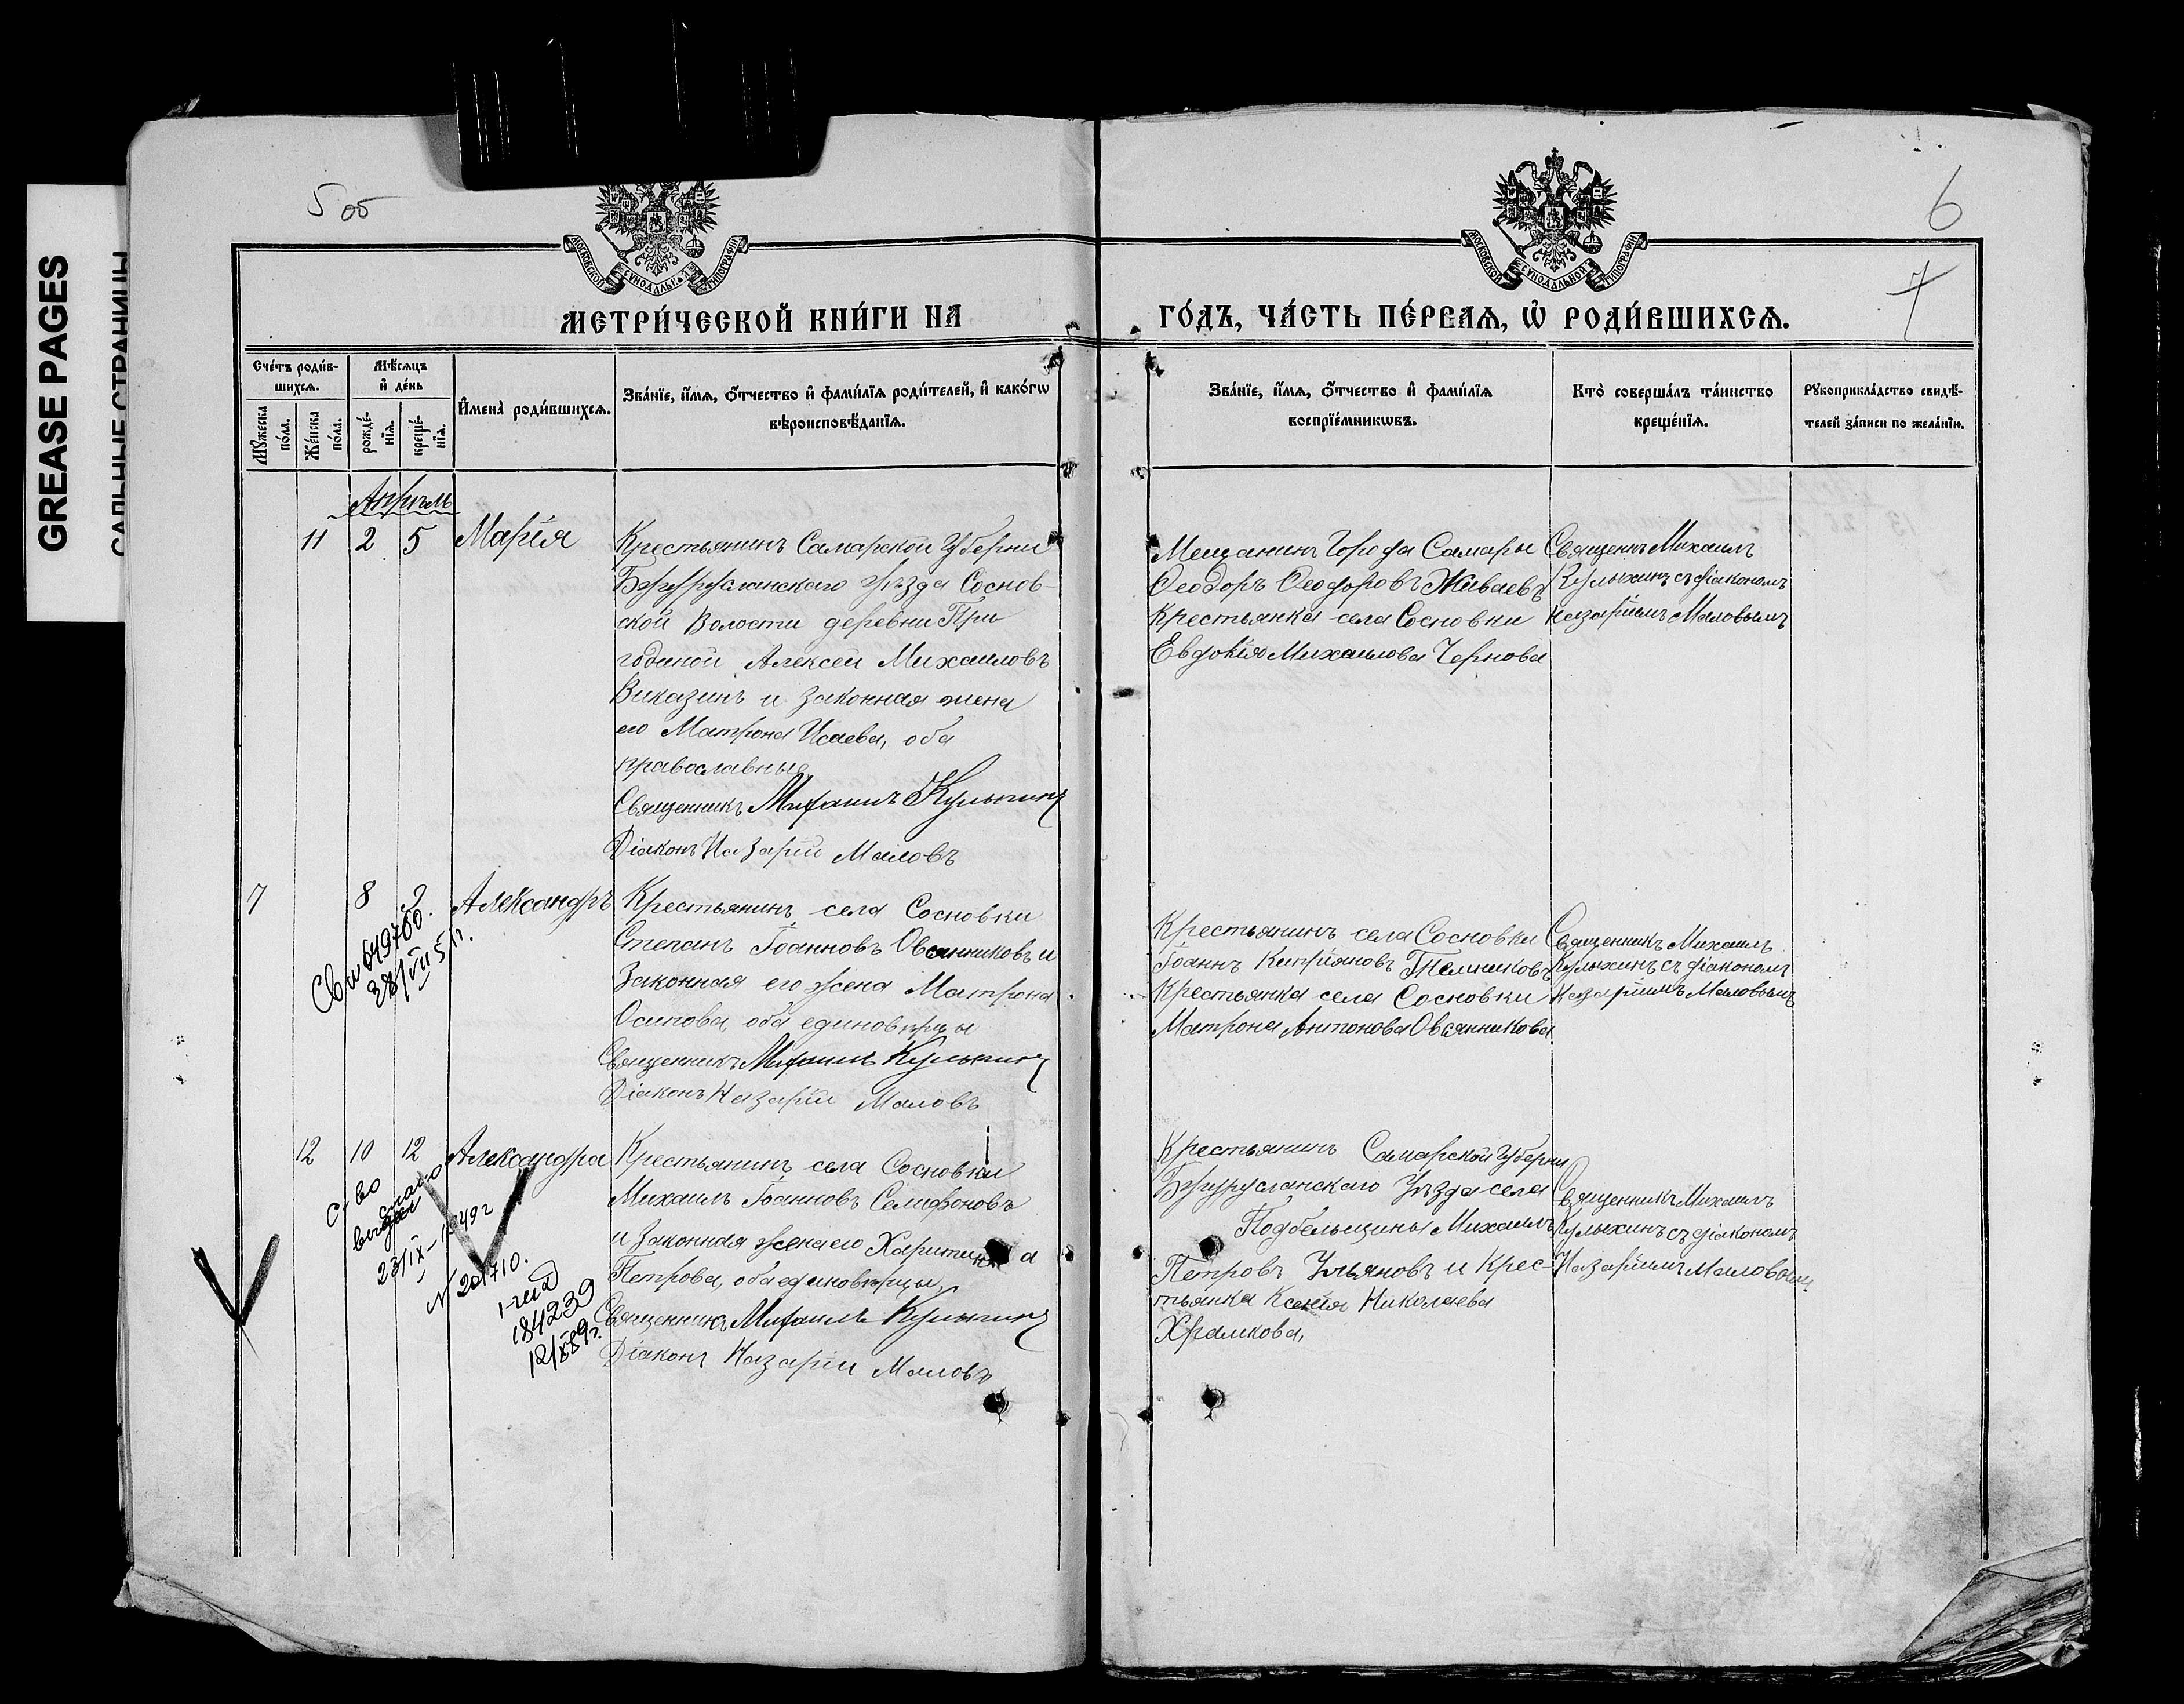 GREASE PAGES
САЛЬНЫЕ СТРАНИЦЫ
5 об
6
7
МОСКОВСКОЙ СѴНОДАЛЬНОЙ ТИПОГРАФІИ
МОСКОВСКОЙ СѴНОДАЛЬНОЙ ТИПОГРАФІИ
МЕТРИ́ЧЕСКОЙ КНИ́ГИ НА
ГО́ДЪ, ЧА́СТЬ ПЕ́РВАѦ, Ѡ҆ РОДИ́ВШИХСѦ.
Сче́тъ роди́в-
шихсѧ.
Мѣ́сѧцъ
и҆ де́нь
Мꙋ́жеска
по́ла.
Же́нска
по́ла.
рожде́-
нїѧ.
креще́-
нїѧ.
И҆мена̀ роди́вшихсѧ.
Зва́нїе, и҆́мѧ, ѻ҆́тчество и҆ фами́лїѧ роди́телей, и҆ како́гѡ
вѣроисповѣ́данїѧ.
Зва́нїе, и҆́мѧ, ѻ҆́тчество и҆ фами́лїѧ
воспрїе́мникѡвъ.
Кто̀ соверша́лъ та́инство
креще́нїѧ.
Рꙋкоприкла́дство свидѣ́-
телей за́писи по жела́нїю.
Апрѣль
11 2 5 Марія
Крестьянинъ Самарской Губерніи
Бугурусланскаго Уѣзда Соснов-
ской Волости деревни При
годиной Алексей Михаиловъ
Виказинъ и законная жена
его Матрона Исаева, оба
православные
Священникъ Михаилъ Кулыхинъ
Діаконъ Назарій Маловъ
Мещанинъ Города Самары
Ѳеодоръ Ѳеодоровъ Живаевъ
Крестьянка села Сосновки
Евдокія Михаилова Чернова
Священкъ Михаилъ
Кулыхинъ съ діакономъ
Назаріемъ Маловымъ
7 8 Александръ
Крестьянинъ села Сосновки
Степанъ Іоанновъ Овсянниковъ и
Законная его жена Матрона
Осипова, оба единовѣрцы
Священникъ Михаилъ Кулыхинъ
Діаконъ Назарій Маловъ
Крестьянинъ села Сосновки
Іоаннъ Кипріяновъ Темниковъ
Крестьянка села Сосновки
Матрона Антонова Овсянникова
Священникъ Михаилъ
Кулыхинъ съ діакономъ
Назаріемъ Маловымъ
12 10 12 Александра
с-во
выдано
23/IX-1949 г
№ 201710.
184239
Крестьянинъ села Сосновки
Михаилъ Іоанновъ Селифоновъ
и Законная жена его Харитина
Петрова, оба единовѣрцы,
Священникъ Михаилъ Кулыхинъ
Діаконъ Назарій Маловъ
Крестьянинъ Самарской Губерніи
Бугурусланскаго Уѣзда села
Подбельщины Михаилъ
Петровъ Ульяновъ и Крес-
тьянка Ксенія Николаева
Храмкова,
Священникъ Михаилъ
Кулыхинъ съ діакономъ
Назаріемъ Маловымъ